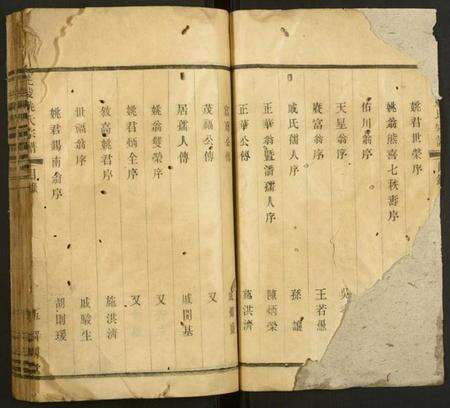 姚君世榮序
姚翁熊喜七秩壽序
佑川翁序
天星翁序 吳
賡富翁序 王若愚
戚氏孺人序 孫讓
正華翁暨潘孺人序 陳炳榮
正華公傳 施洪濟
公傳
茂公傳 又
居孺人傳 戚開基
姚翁雙榮序 又
姚君炳全序 又
姚君序 施洪濟
世福翁序 戚駿生
姚君錫南翁序 胡則瑗
姚氏宗譜 目錄